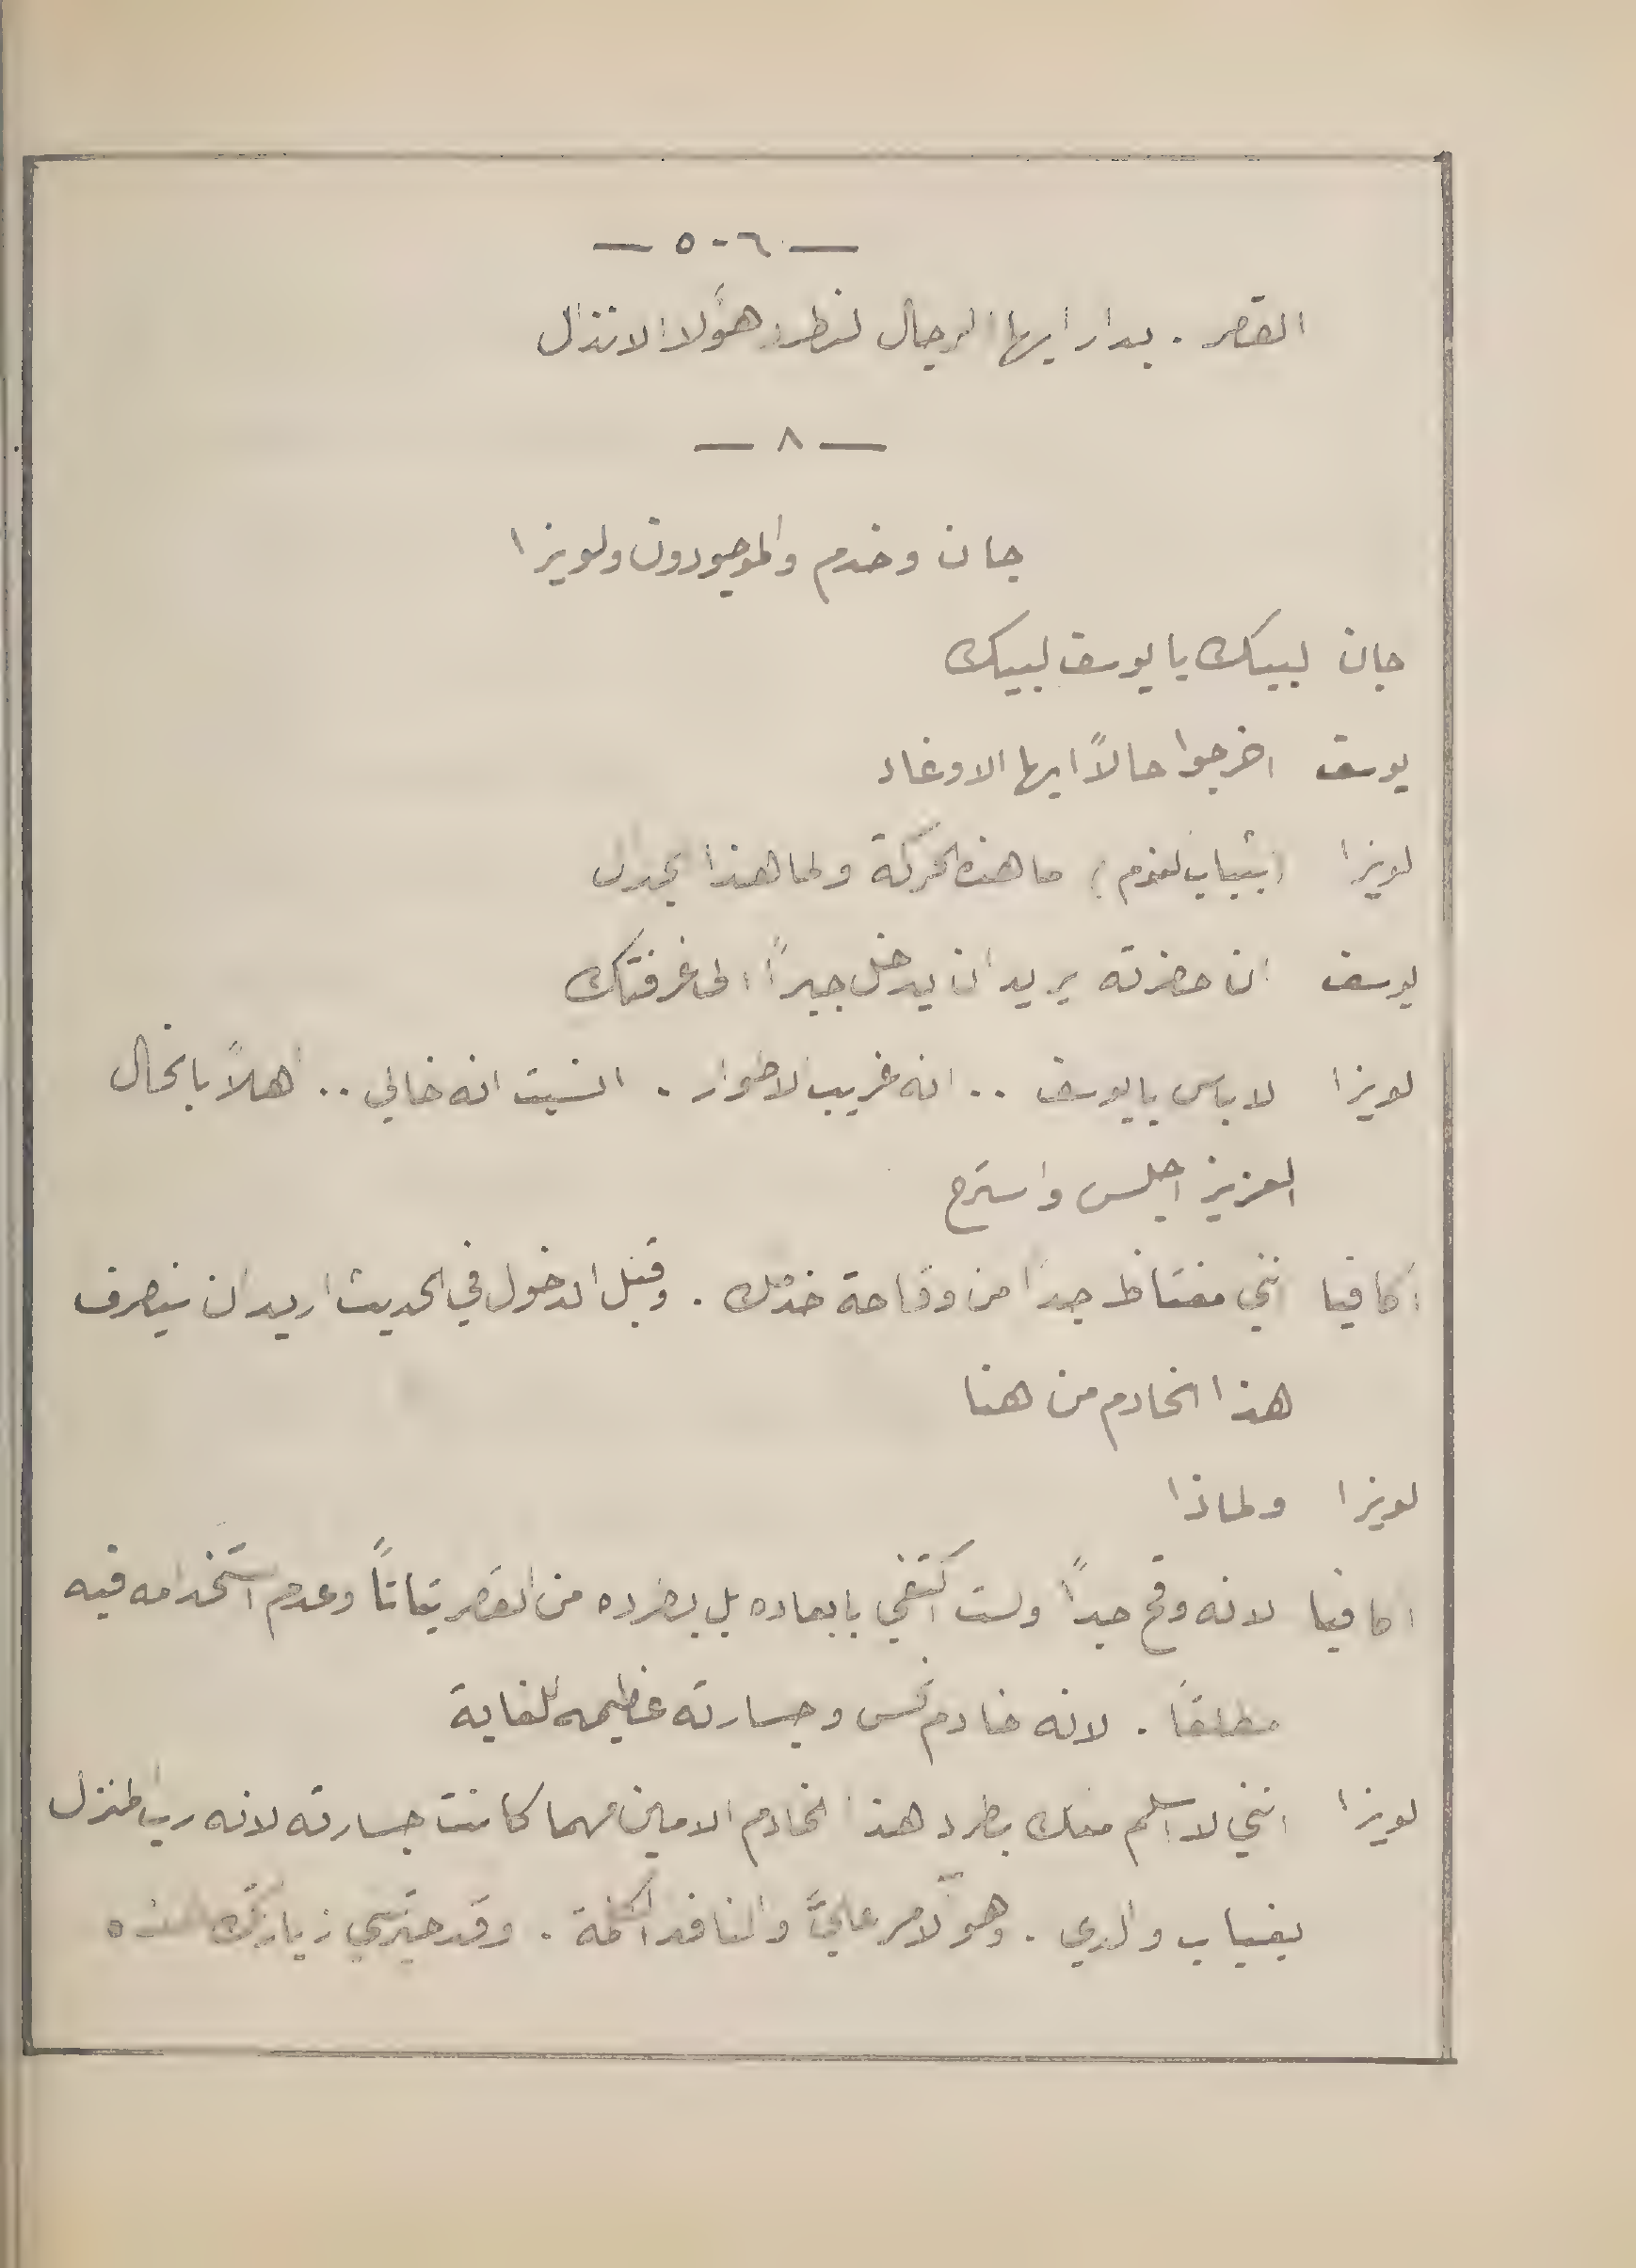 — ٦-٥ —
القصر . بدار ايها الرجال لنطرد هؤلا الانذال
— ٨ —
جان وخدم والموجودون ولويزا
جان لبيك يا يوسف لبيك
يوسف اخرجوا حالاً ايها الاوغاد
لويزا (بثياب النوم) ما هذه الحركة ولما هذا الجدال
يوسف ان حضرته يريد ان يدخل جبراً الى غرفتك
لويزا لا باس يا يوسف .. انه غريب الاطوار . انسيت انه خالي .. اهلاً بالخال
العزيز اجلس واسترح
اكافيا انني مغتاظ جداً من وقاحة خدمك . وقبل الدخول في الحديث اريد ان ينصرف
هذا الخادم من هنا
لويزا ولماذا
اكافيا لانه وقح جداً ولست اكتفي بابعاده بل بطرده من القصر بتاتاً وعدم استخدامه فيه
مطلقاً . لانه خادم نحس وجسارته عظيمه للغاية
لويزا انني لا اسلم معك بطرد هذا الخادم الامين مهما كانت جسارته لانه رب المنزل
بغياب والدي . وهو الامر عليَّ والنافذ الكلمة . وقد حيرتني زيارتك هذه